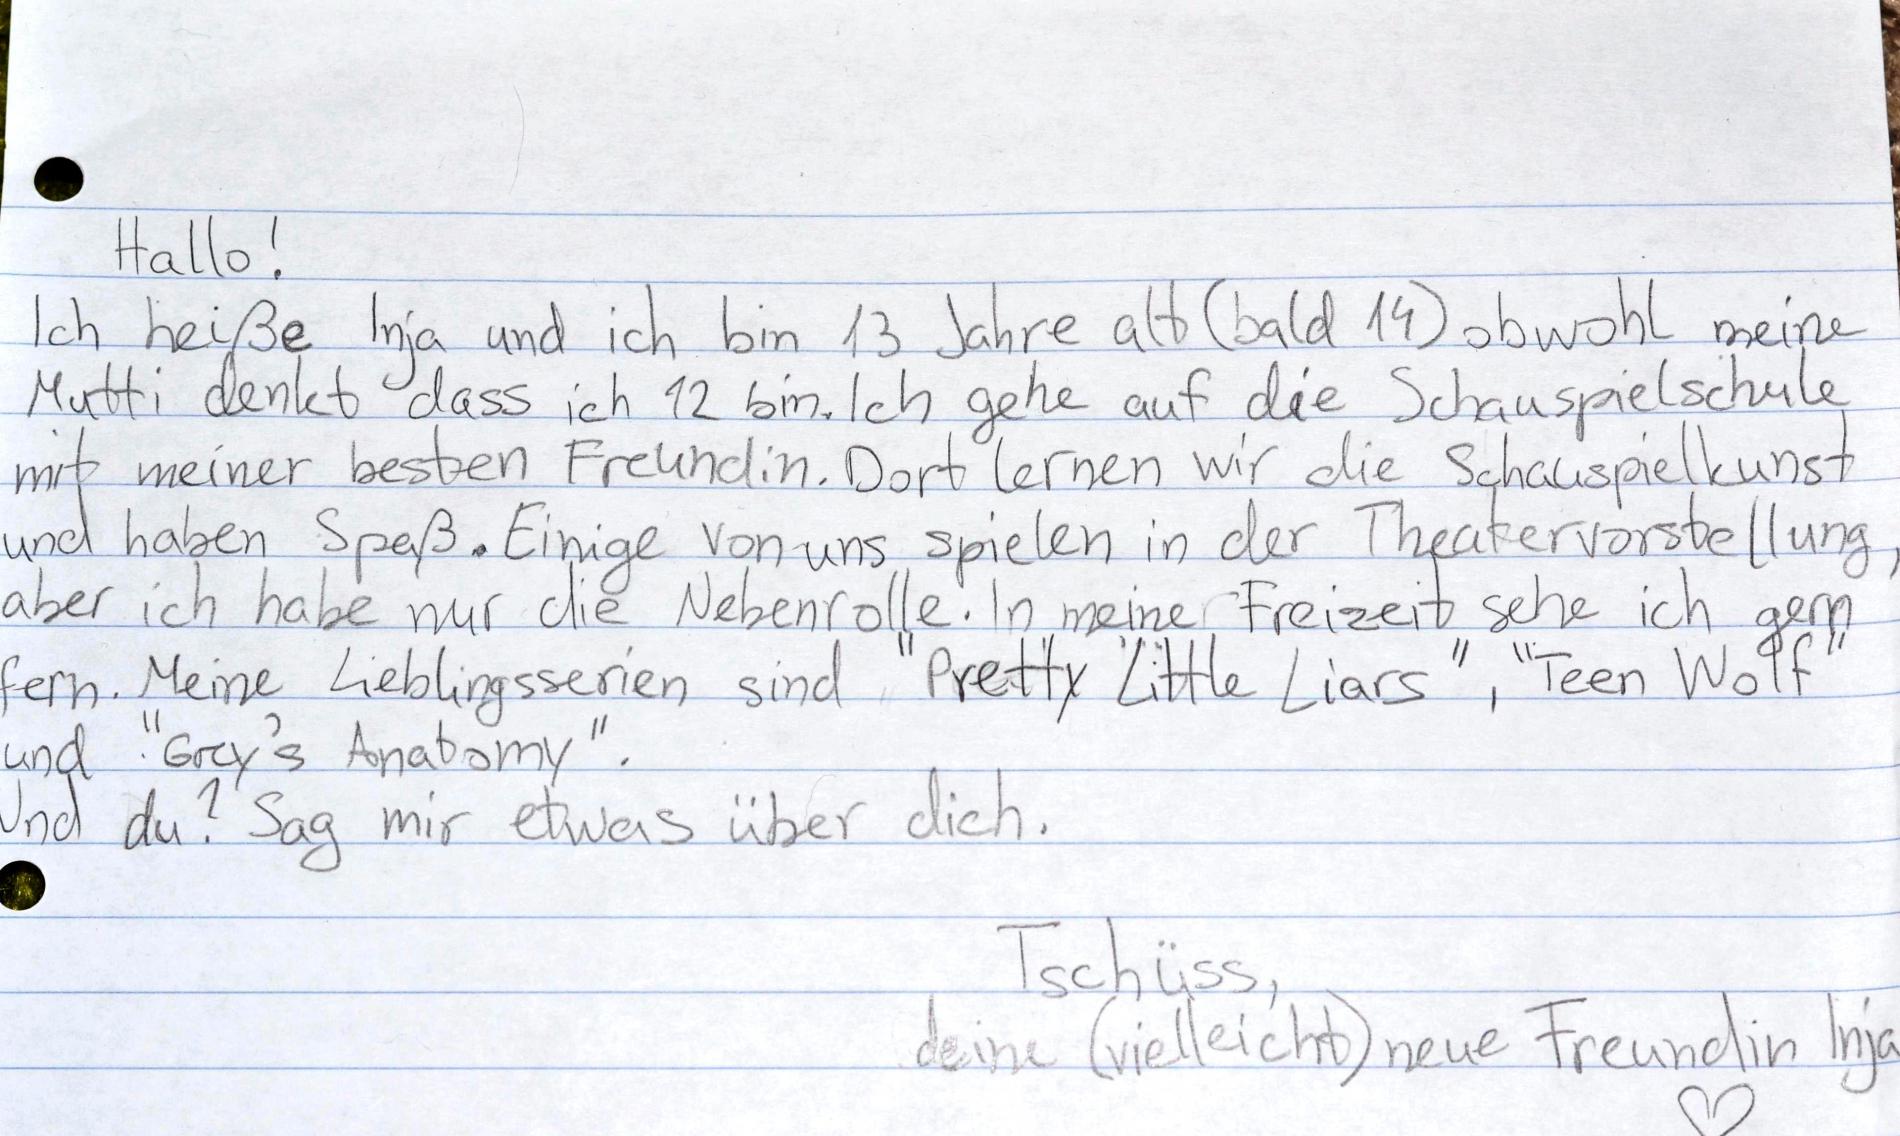 Hallo!
Ich heiße Inja und ich bin 13 Jahre alt (bald 14) obwohl meine
Mutti denkt dass ich 12 bin. Ich gehe auf die Schauspielschule
mit meiner besten Freundin. Dort lernen wir die Schauspielkunst
und haben Spaß. Einige von uns spielen in der Theatervorstellung,
aber ich habe nur die Nebenrolle. In meine Freizeit sehe ich gern
fern. Meine Lieblingsserien sind "Pretty Little Liars", "Teen Wolf"
und "Grey's Anatomy".
Und du? Sag mir etwas über dich.
Tschüss,
deine (vielleicht) neue Freundin Inja